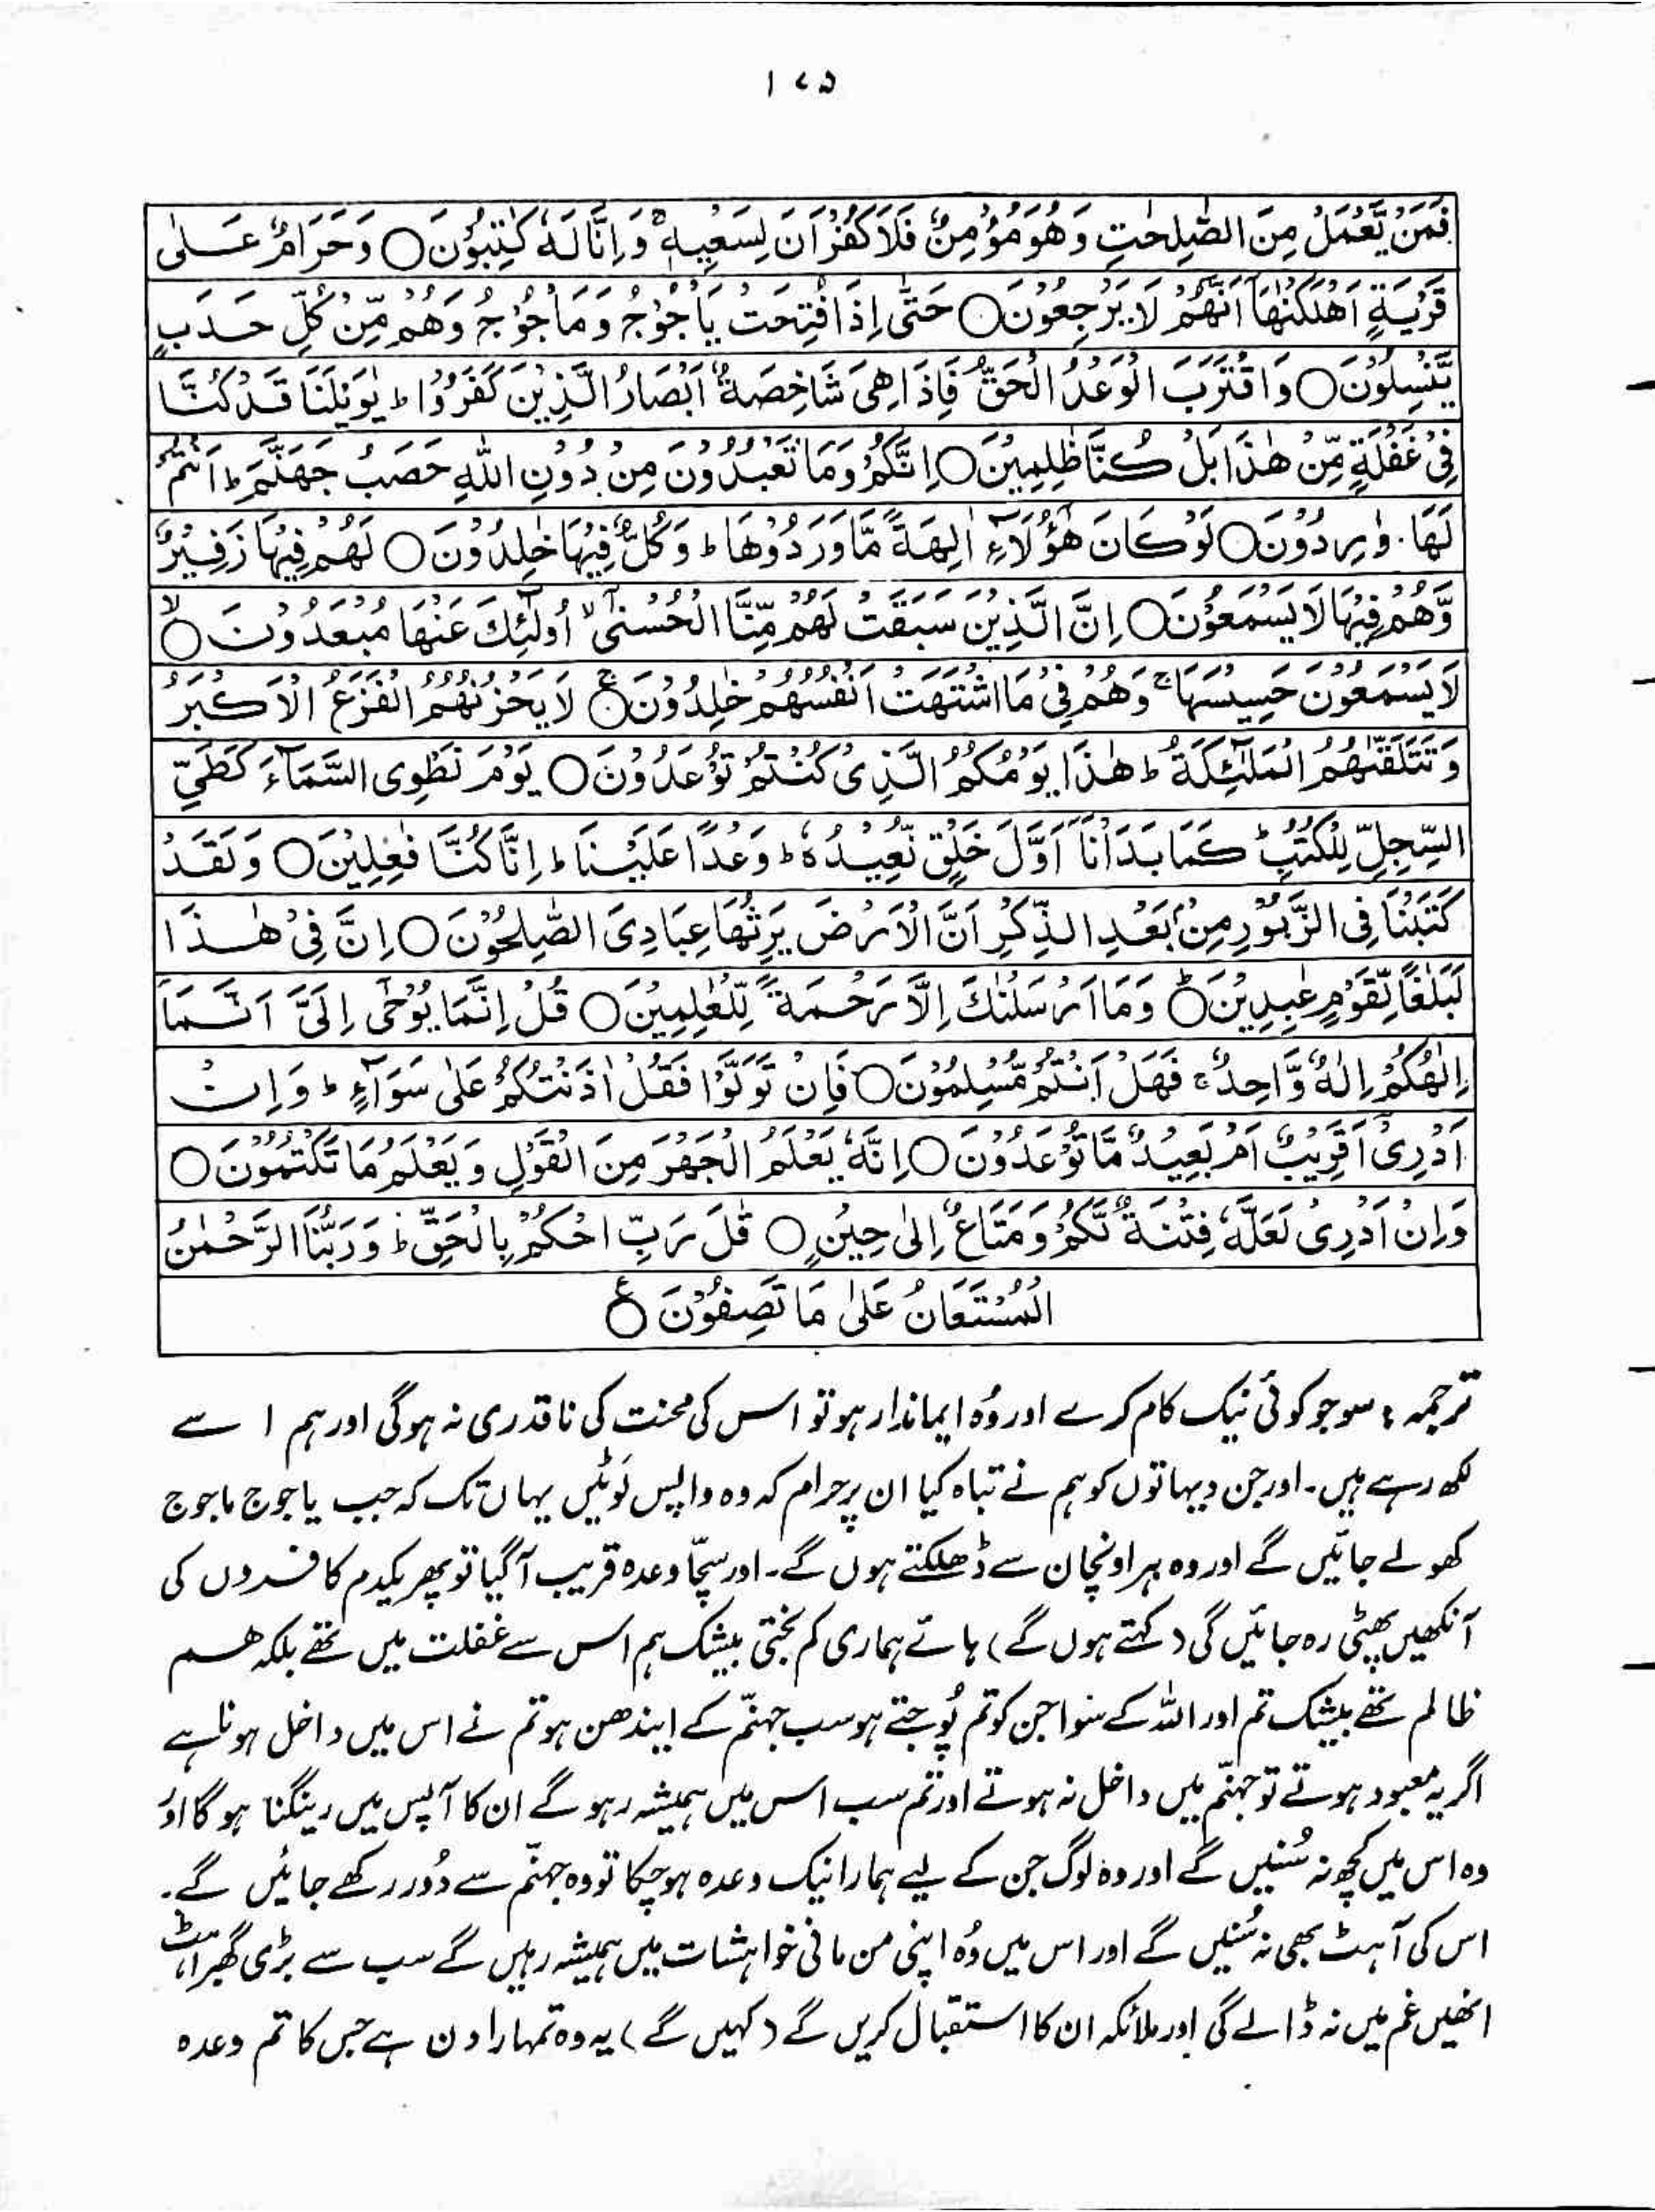 ۱۷۵
فَمَنْ يَّعْمَلْ مِنَ الصّٰلِحٰتِ وَهُوَ مُؤْمِنٌ فَلَا كُفْرَانَ لِسَعْيِهٖ ۚ وَاِنَّا لَهٗ كٰتِبُوْنَ ○ وَحَرَامٌ عَلٰى
قَرْيَةٍ اَهْلَكْنٰهَآ اَنَّهُمْ لَا يَرْجِعُوْنَ ○ حَتّٰى اِذَا فُتِحَتْ يَاْجُوْجُ وَمَاْجُوْجُ وَهُمْ مِّنْ كُلِّ حَدَبٍ
يَّنْسِلُوْنَ ○ وَاقْتَرَبَ الْوَعْدُ الْحَقُّ فَاِذَا هِىَ شَاخِصَةٌ اَبْصَارُ الَّذِيْنَ كَفَرُوْا ؕ يٰوَيْلَنَا قَدْ كُنَّا
فِىْ غَفْلَةٍ مِّنْ هٰذَا بَلْ كُنَّا ظٰلِمِيْنَ ○ اِنَّكُمْ وَمَا تَعْبُدُوْنَ مِنْ دُوْنِ اللّٰهِ حَصَبُ جَهَنَّمَ ؕ اَنْتُمْ
لَهَا وٰرِدُوْنَ ○ لَوْ كَانَ هٰٓؤُلَآءِ اٰلِهَةً مَّا وَرَدُوْهَا ؕ وَكُلٌّ فِيْهَا خٰلِدُوْنَ ○ لَهُمْ فِيْهَا زَفِيْرٌ
وَّهُمْ فِيْهَا لَا يَسْمَعُوْنَ ○ اِنَّ الَّذِيْنَ سَبَقَتْ لَهُمْ مِّنَّا الْحُسْنٰٓى ۙ اُولٰٓئِكَ عَنْهَا مُبْعَدُوْنَ ○ ۙ
لَا يَسْمَعُوْنَ حَسِيْسَهَا ۚ وَهُمْ فِىْ مَا اشْتَهَتْ اَنْفُسُهُمْ خٰلِدُوْنَ ○ ۚ لَا يَحْزُنُهُمُ الْفَزَعُ الْاَكْبَرُ
وَتَتَلَقّٰهُمُ الْمَلٰٓئِكَةُ ؕ هٰذَا يَوْمُكُمُ الَّذِىْ كُنْتُمْ تُوْعَدُوْنَ ○ يَوْمَ نَطْوِى السَّمَآءَ كَطَىِّ
السِّجِلِّ لِلْكُتُبِ ؕ كَمَا بَدَاْنَآ اَوَّلَ خَلْقٍ نُّعِيْدُهٗ ؕ وَعْدًا عَلَيْنَا ؕ اِنَّا كُنَّا فٰعِلِيْنَ ○ وَلَقَدْ
كَتَبْنَا فِى الزَّبُوْرِ مِنْۢ بَعْدِ الذِّكْرِ اَنَّ الْاَرْضَ يَرِثُهَا عِبَادِىَ الصّٰلِحُوْنَ ○ اِنَّ فِىْ هٰذَا
لَبَلٰغًا لِّقَوْمٍ عٰبِدِيْنَ ○ ؕ وَمَآ اَرْسَلْنٰكَ اِلَّا رَحْمَةً لِّلْعٰلَمِيْنَ ○ قُلْ اِنَّمَا يُوْحٰٓى اِلَىَّ اَنَّمَآ
اِلٰهُكُمْ اِلٰهٌ وَّاحِدٌ ۚ فَهَلْ اَنْتُمْ مُّسْلِمُوْنَ ○ فَاِنْ تَوَلَّوْا فَقُلْ اٰذَنْتُكُمْ عَلٰى سَوَآءٍ ؕ وَاِنْ
اَدْرِىْٓ اَقَرِيْبٌ اَمْ بَعِيْدٌ مَّا تُوْعَدُوْنَ ○ اِنَّهٗ يَعْلَمُ الْجَهْرَ مِنَ الْقَوْلِ وَيَعْلَمُ مَا تَكْتُمُوْنَ ○
وَاِنْ اَدْرِىْ لَعَلَّهٗ فِتْنَةٌ لَّكُمْ وَمَتَاعٌ اِلٰى حِيْنٍ ○ قٰلَ رَبِّ احْكُمْ بِالْحَقِّ ؕ وَرَبُّنَا الرَّحْمٰنُ
الْمُسْتَعَانُ عَلٰى مَا تَصِفُوْنَ ○ ع
ترجمہ : سو جو کوئی نیک کام کرے اور وُہ ایماندار ہو تو اس کی محنت کی ناقدری نہ ہوگی اور ہم اسے
لکھ رہے ہیں۔ اور جن دیہاتوں کو ہم نے تباہ کیا ان پر حرام کہ وہ واپس لوٹیں یہاں تک کہ جب یاجوج ماجوج
کھولے جائیں گے اور وہ ہر اونچان سے ڈھلکتے ہوں گے۔ اور سچّا وعدہ قریب آ گیا تو پھر یکدم کافروں کی
آنکھیں پھٹی رہ جائیں گی (کہتے ہوں گے) ہائے ہماری کم بختی بیشک ہم اس سے غفلت میں تھے بلکہ ہم
ظالم تھے بیشک تم اور اللہ کے سوا جن کو تم پُوجتے ہو سب جہنّم کے ایندھن ہو تم نے اس میں داخل ہونا ہے
اگر یہ معبود ہوتے تو جہنّم میں داخل نہ ہوتے اور تم سب اس میں ہمیشہ رہو گے ان کا آپس میں رینگنا ہو گا اور
وہ اس میں کچھ نہ سُنیں گے اور وہ لوگ جن کے لیے ہمارا نیک وعدہ ہو چکا تو وہ جہنّم سے دُور رکھے جائیں گے۔
اس کی آہٹ بھی نہ سُنیں گے اور اس میں وُہ اپنی من مانی خواہشات میں ہمیشہ رہیں گے سب سے بڑی گھبراہٹ
انھیں غم میں نہ ڈالے گی اور ملائکہ ان کا استقبال کریں گے (کہیں گے) یہ وہ تمہارا دن ہے جس کا تم وعدہ